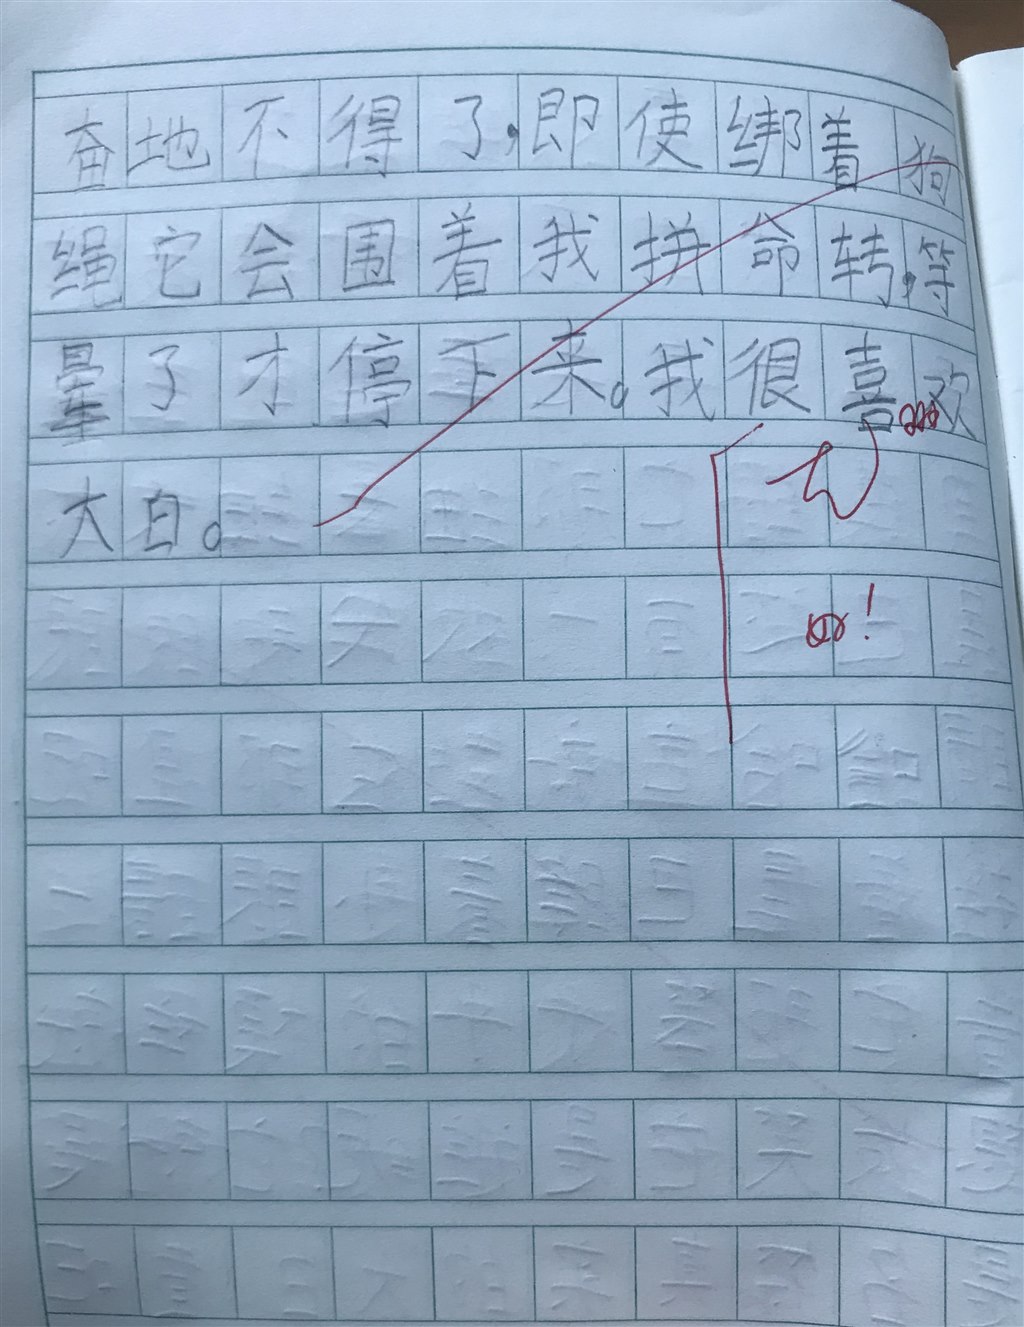 奋地不得了，即使绑着狗
绳它会围着我拼命转，等
晕了才停下来。我很喜欢
大白。